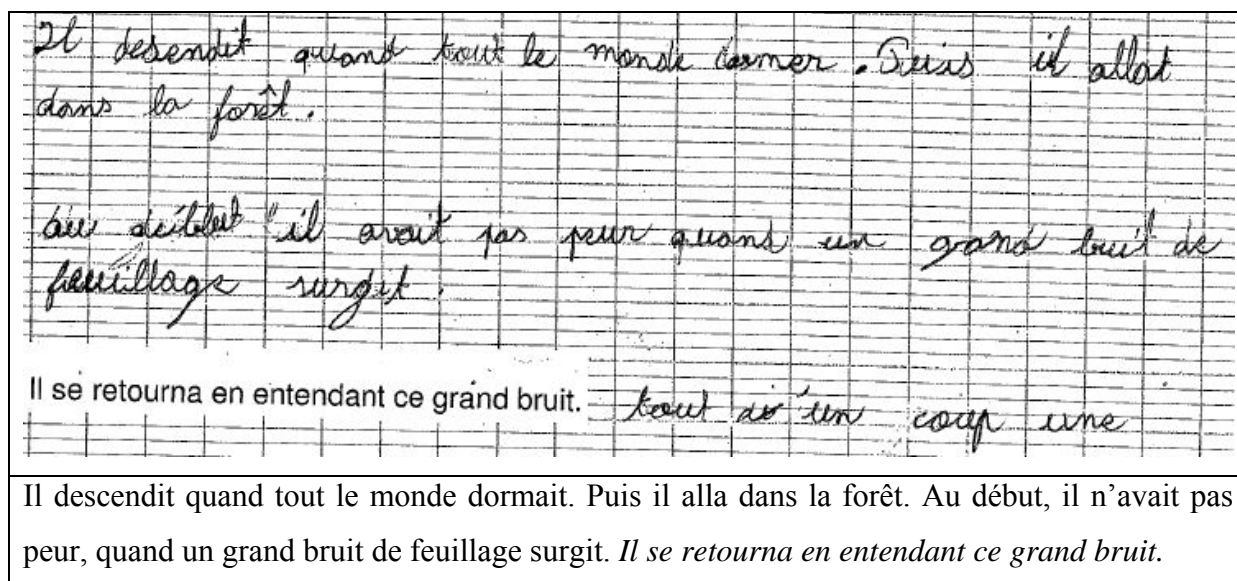 Il desendit quand tout le monde dormer. Puis il allat
dans la forêt.
au début il avait pas peur quand un grand bruit de
feuillage surgit.
Il se retourna en entendant ce grand bruit. tout d'un coup une
Il descendit quand tout le monde dormait. Puis il alla dans la forêt. Au début, il n’avait pas
peur, quand un grand bruit de feuillage surgit. Il se retourna en entendant ce grand bruit.